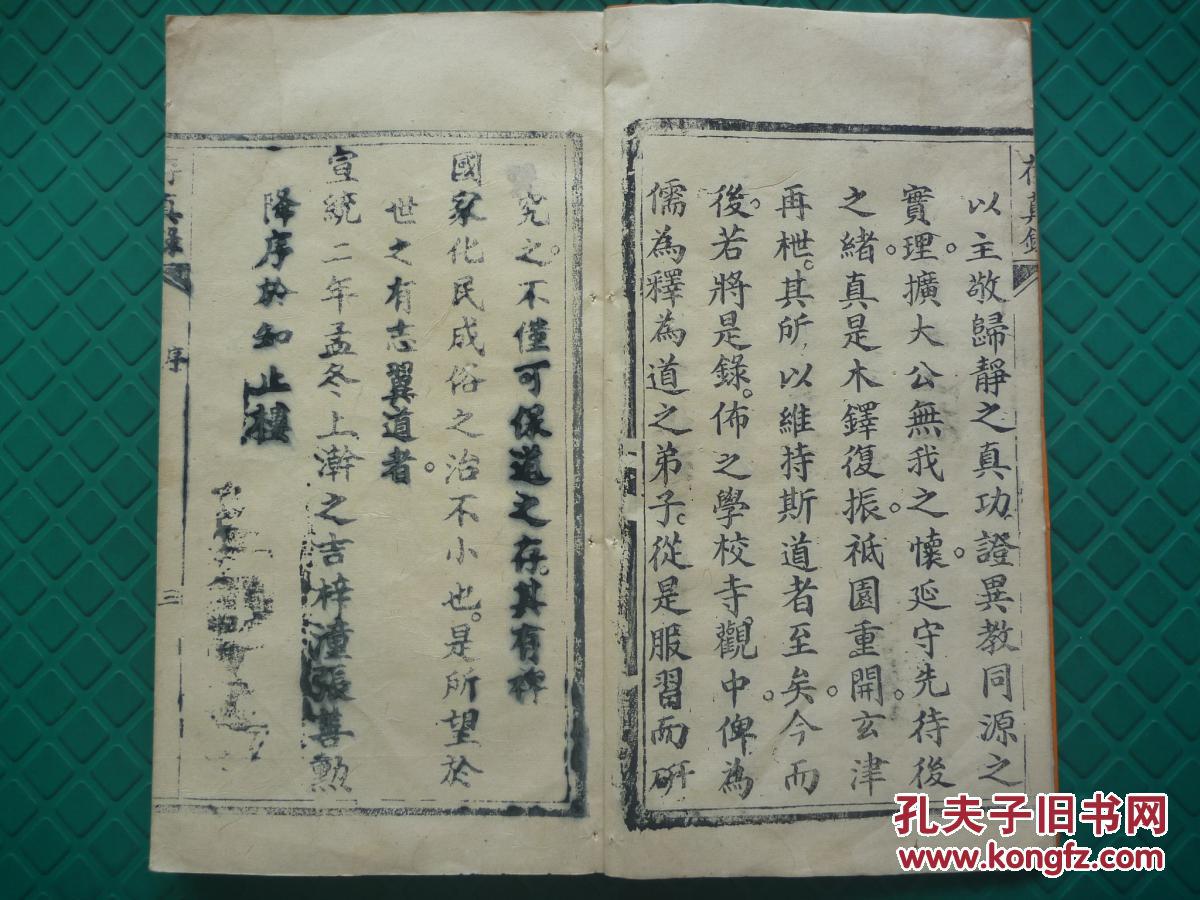 存真錄
以主敬歸靜之真功證異教同源之
實理。擴大公無我之懷。延守先待後
之緒。真是木鐸復振。祇園重開。玄津
再枻。其所以維持斯道者至矣。今而
後。若將是錄。佈之學校寺觀中。俾為
儒為釋為道之弟子。從是服習而研
究之。不僅可保道之存。其有裨
國家化民成俗之治不小也。是所望於
世之有志翼道者。
宣統二年孟冬上澣之吉梓潼張善勲
降序於知止樓
存真錄
序
三
孔夫子旧书网
www.kongfz.com